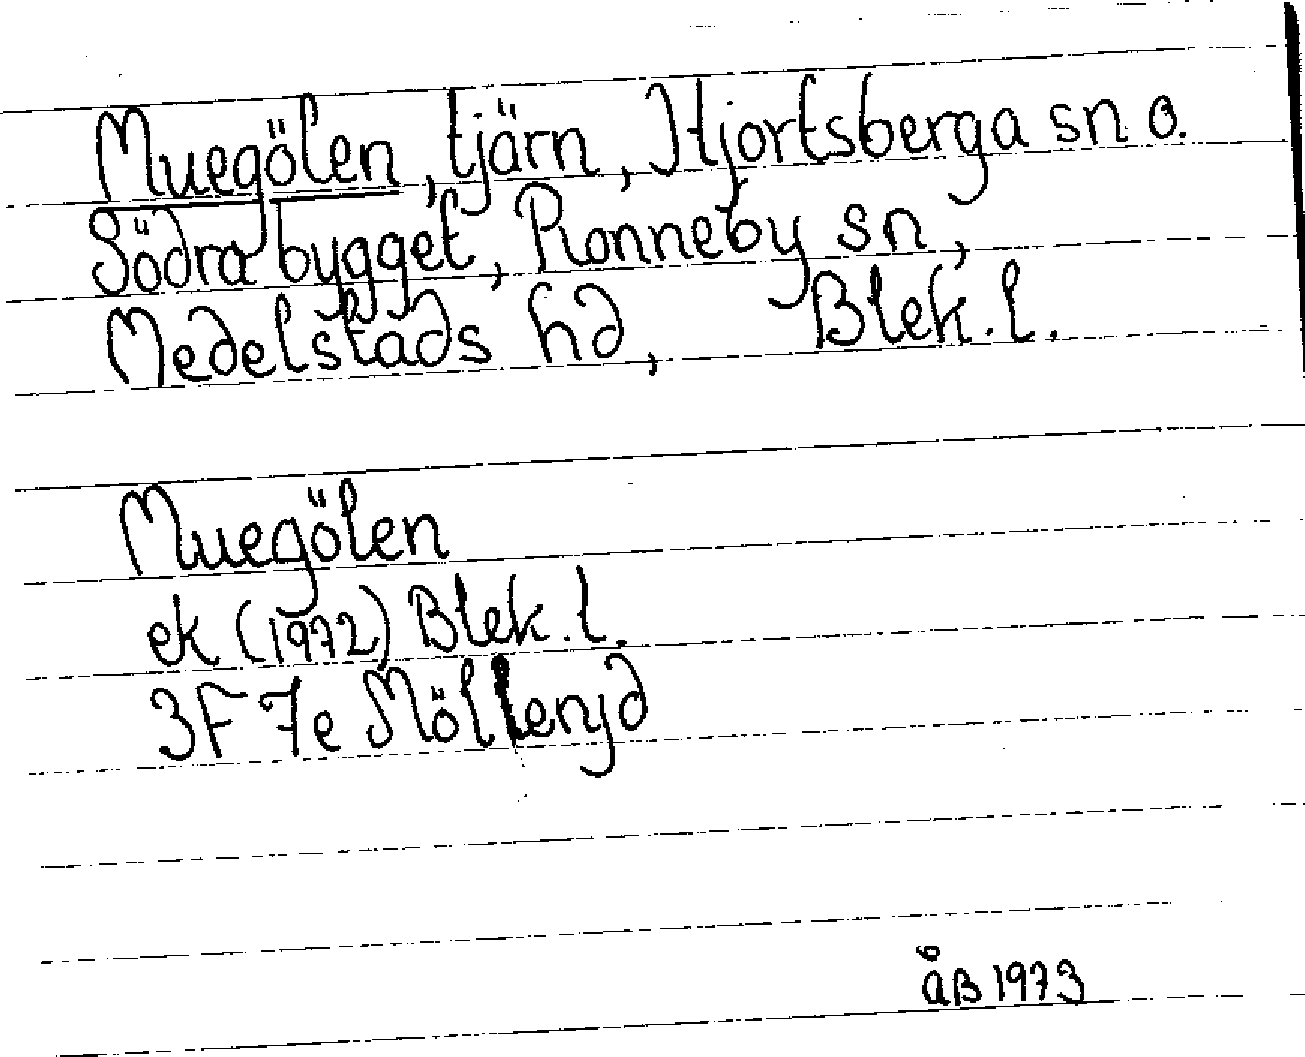 Muegölen, tjärn, Hjortsberga sn o.
Södra bygget, Ronneby sn,
Medelstads hd, Blek. l.
Muegölen
ek (1972) Blek. l.
3F 7e Möllenjd
åB 1973